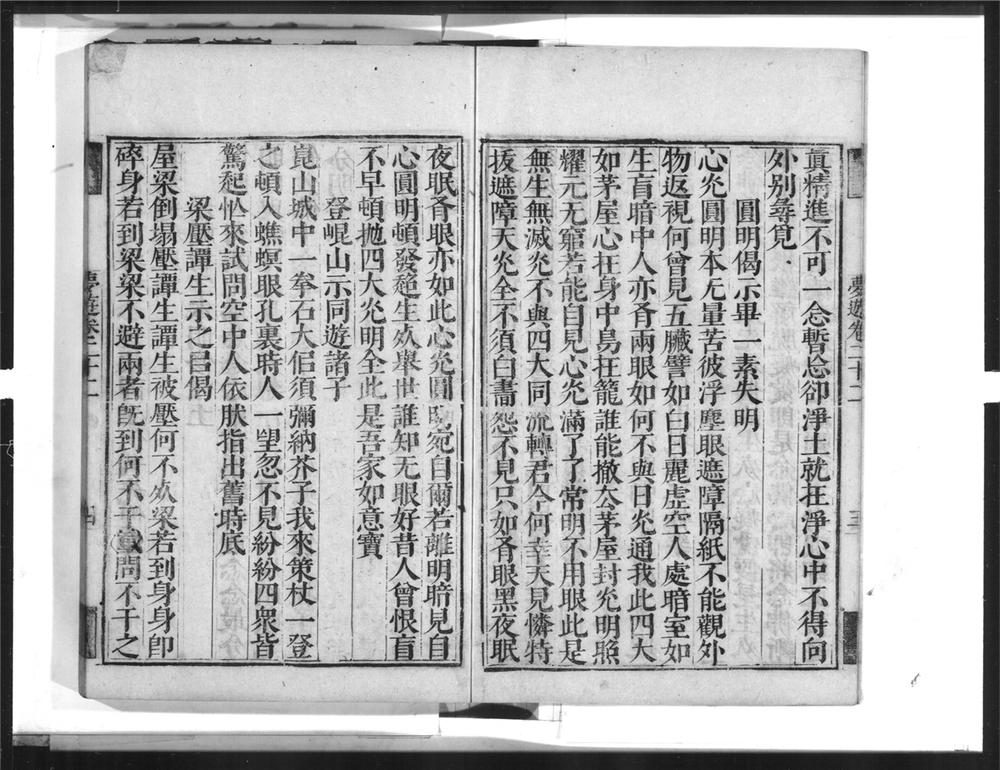 眞精進不可一念暫忘卻淨土就在淨心中不得向
外别尋覓
圓明偈示畢一素失明
心光圓明本无量苦彼浮塵眼遮障隔紙不能觀外
物返視何曾見五臟譬如白日麗虛空人處暗室如
生盲暗中人亦有兩眼如何不與日光通我此四大
如茅屋心在身中昜在籠誰能撤去茅屋封光明照
耀元无窮若能自見心光滿了了常明不用眼此是
無生無滅光不與四大同流轉君今何幸天見憐特
拔遮障天光全不須白晝怨不見只如有眼黑夜眠
夜眠有眼亦如此心光圓明宛自爾若離明暗見自
心圓明頓發超生死舉世誰知无眼好昔人曾恨盲
不早頓拋四大光明全此是吾家如意寶
登崐山示同遊諸子
崑山城中一拳石大侣須彌納芥子我來策杖一登
之頓入蟭螟眼孔裏時人一望忽不見紛紛四衆皆
驚起忙來試問空中人依然指出舊時底
梁壓譚生示之㠯偈
屋梁倒塌壓譚生譚生被壓何不死梁若到身身即
碎身若到梁梁不避兩者既到何不于㪽問不于之
夢遊卷二十二
夢遊卷二十二